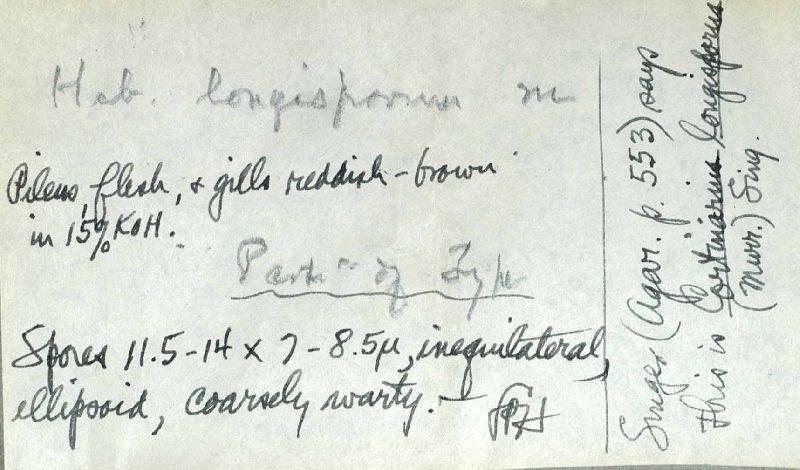 Heb. longisporum m
Pileus, flesh, & gills reddish-brown
in 15% KOH.
Part of Type
Spores 11.5-14 x 7-8.5µ, inequilateral,
ellipsoid, coarsely warty. —
Singer (Agar. p. 553) says
this is Cortinarius longisporus
(Murr.) Sing.